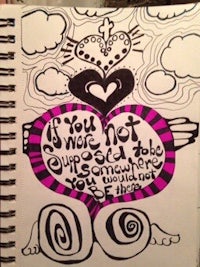 if You
were Not
Supposed to be
Somewhere
You would not
BE there